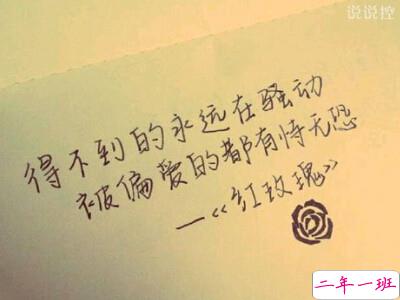 说说控
得不到的永远在骚动
被偏爱的都有恃无恐
—《红玫瑰》
二年一班